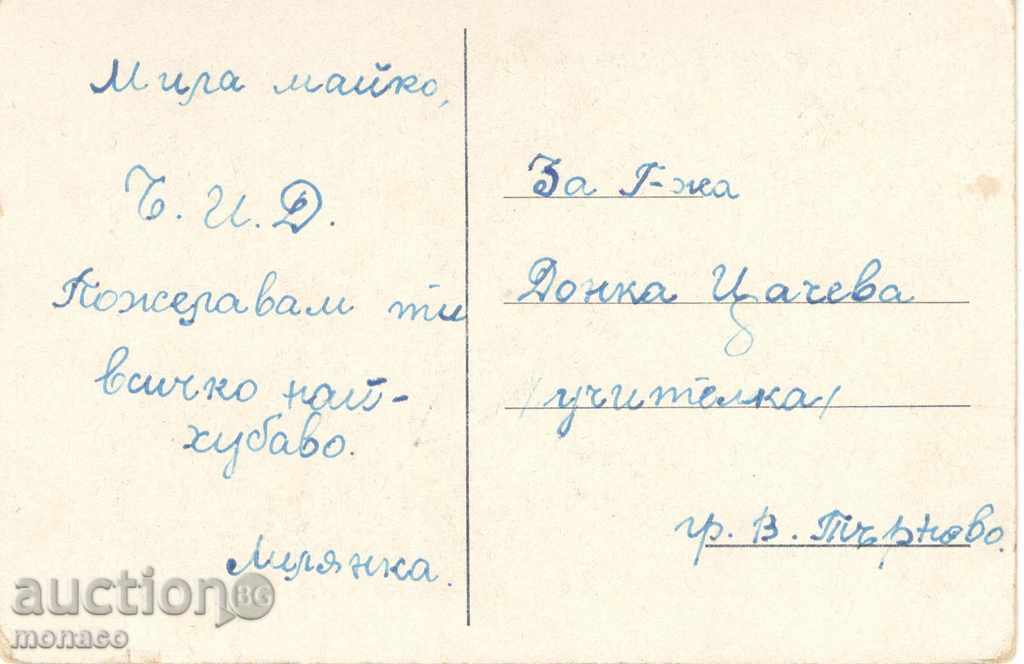 Мила майко,
Ч. И. Д.
Пожелавам ти
всичко най-
хубаво.
За Г-жа
Донка Цачева
/учителка/
гр. В. Търново.
auction BG
monaco